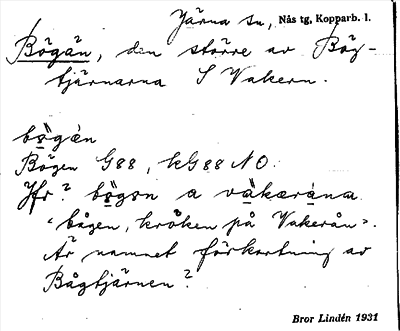 Järna sn, Nås tg, Kopparb. l.
Bögän, den större av Bög-
tjärnarna S Vakern.
bögän
Bögen G88, kG88 NO.
Jfr? bögson a väkæråna
"bågen, kröken på Vakerån".
Är namnet förkortning av
Bågtjärnen?
Bror Lindén 1931